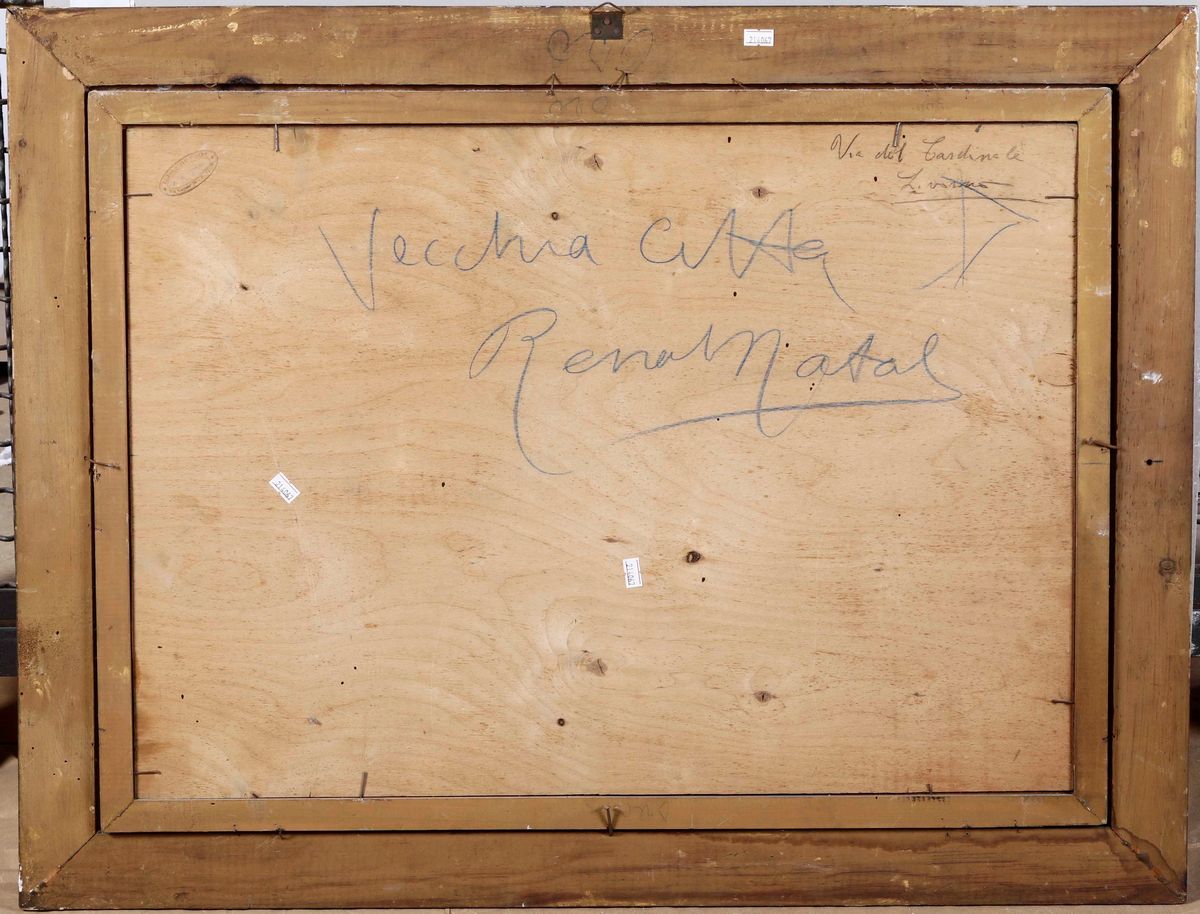 214042
Via del Cardinale
Livorno
Vecchia Città
Renato Natali
214042
214042